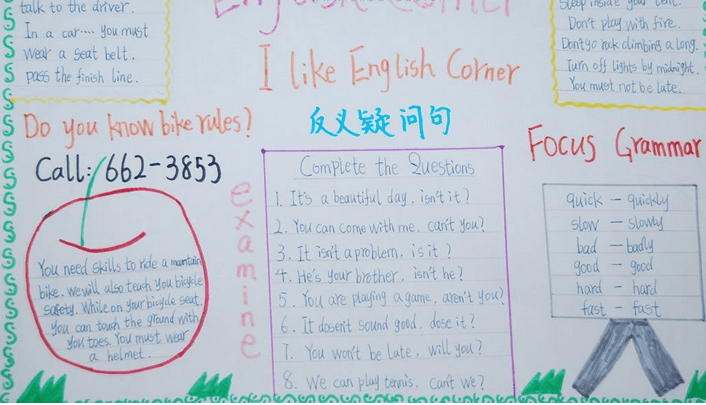 talk to the driver.
In a car.... you must
wear a seat belt.
pass the finish line.
English Corner
sleep inside your tent.
Don't play with fire.
Don't go rock climbing a long.
Turn off lights by midnight.
You must not be late.
I like English Corner
Do you know bike rules?
Call: 662-3853
You need skills to ride a mountain
bike. we will also teach you bicycle
safety. While on your bicycle seat,
you can touch the ground with
you toes. You must wear
a helmet.
examine
反义疑问句
Complete the Questions
1. It's a beautiful day, isn't it?
2. You can come with me, can't you?
3. It isn't a problem, is it?
4. He's your brother, isn't he?
5. You are playing a game, aren't you?
6. It doesn't sound good, dose it?
7. You won't be late, will you?
8. We can play tennis, can't we?
Focus Grammar
quick — quickly
slow — slowly
bad — badly
good — good
hard — hard
fast — fast